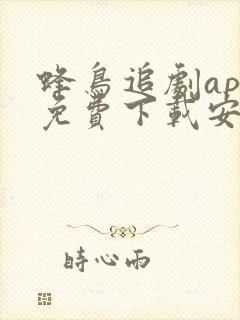 蜂鳥追劇ap
免費下載安
時心雨